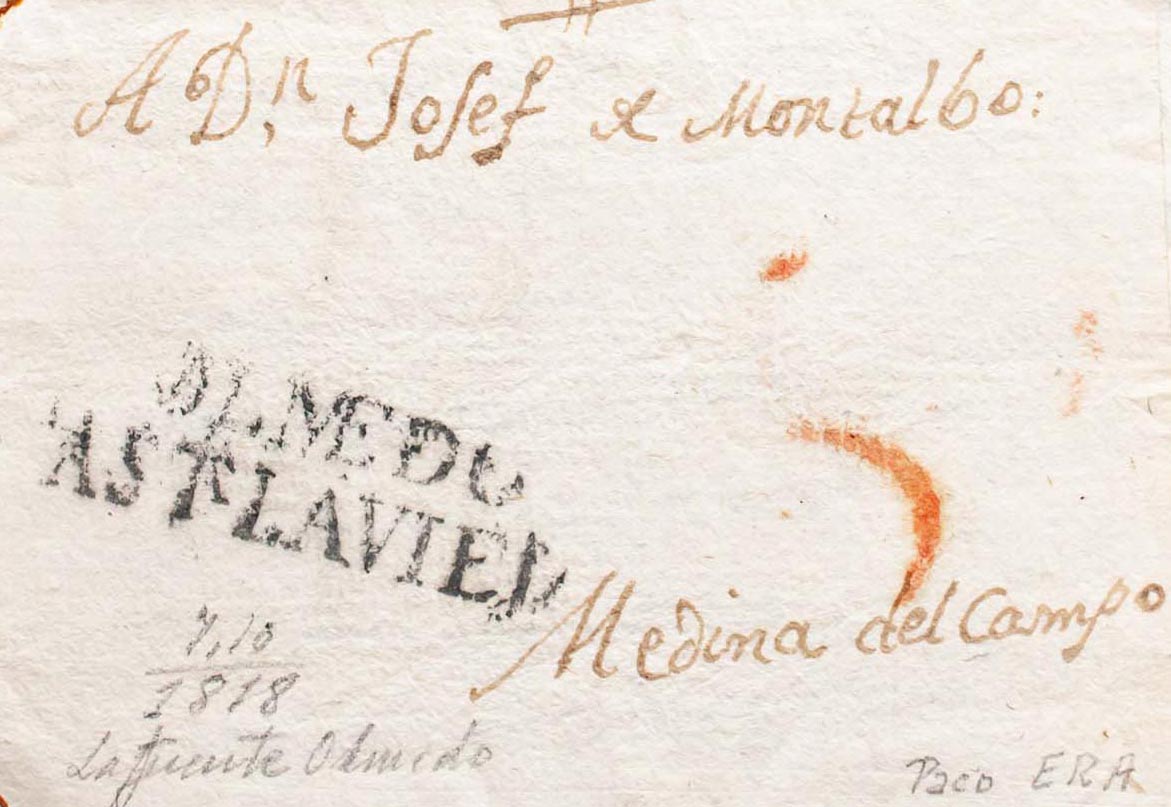 A Dⁿ. Josef de Montalbo:
OLMEDO
CAST.LAVIEJA
Medina del Campo
7,10
1818
Lafuente Olmedo
Paco ERA